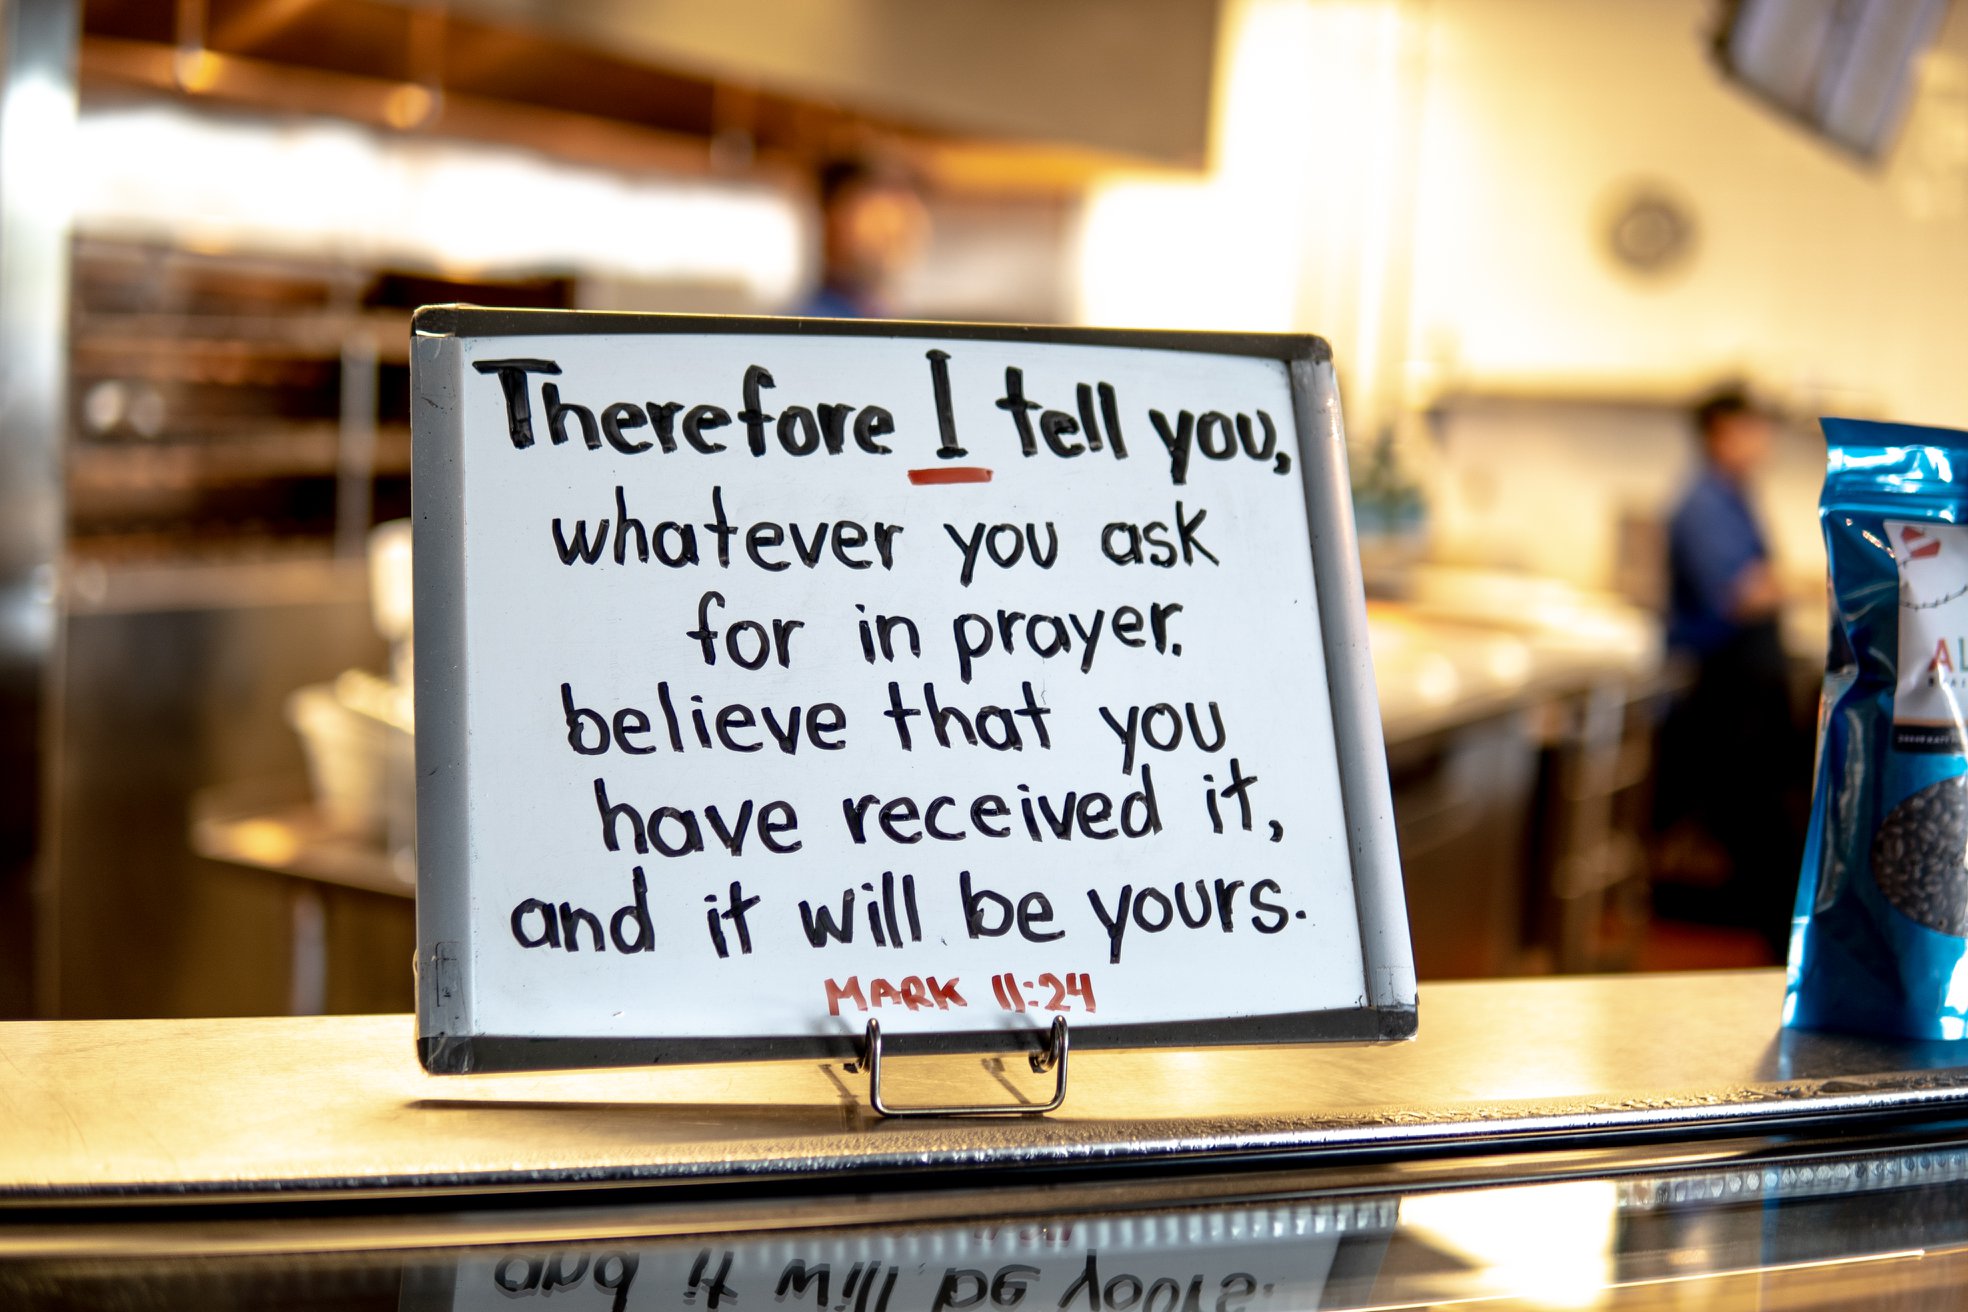 Therefore I tell you,
whatever you ask
for in prayer.
believe that you
have received it,
and it will be yours.
MARK 11:24